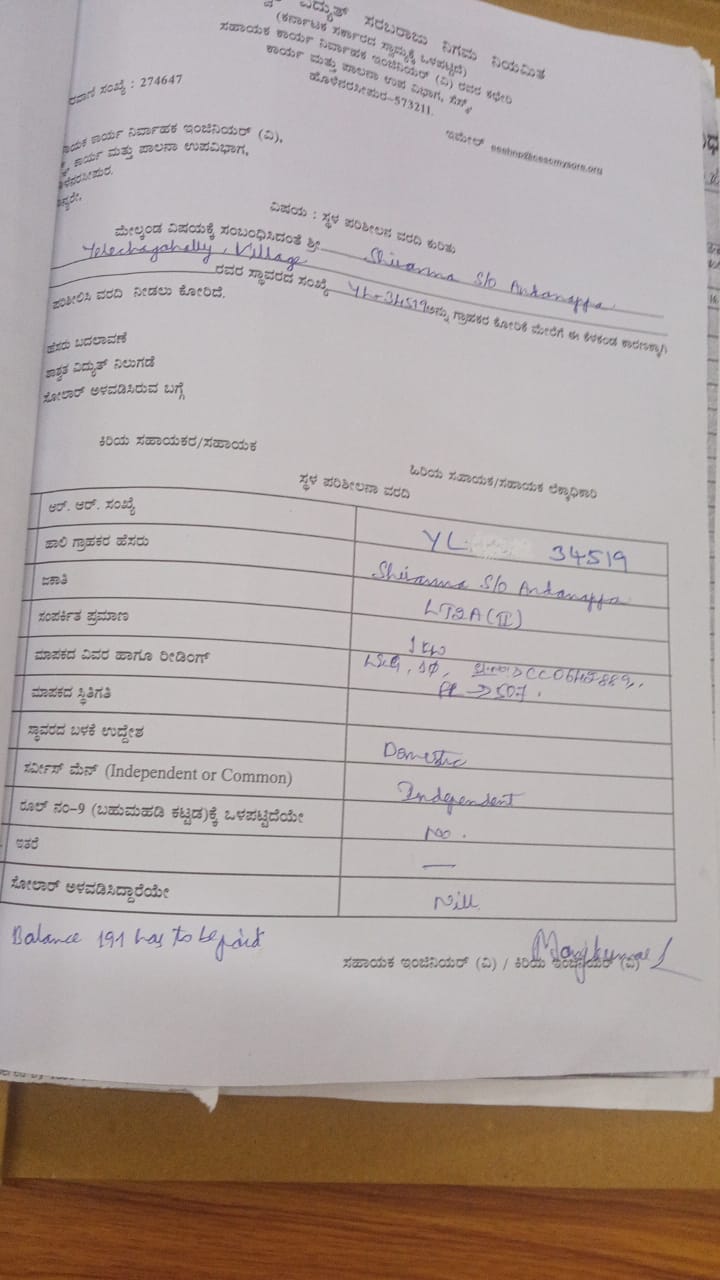 ವಿದ್ಯುತ್ ಸರಬರಾಜು ನಿಗಮ ನಿಯಮಿತ
(ಕರ್ನಾಟಕ ಸರ್ಕಾರದ ಸ್ವಾಮ್ಯಕ್ಕೆ ಒಳಪಟ್ಟಿದೆ)
ಸಹಾಯಕ ಕಾರ್ಯ ನಿರ್ವಾಹಕ ಇಂಜಿನಿಯರ್ (ವಿ) ರವರ ಕಛೇರಿ
ಕಾರ್ಯ ಮತ್ತು ಪಾಲನಾ ಉಪ ವಿಭಾಗ, ಸೆಸ್ಕ್
ಹೊಳೆನರಸೀಪುರ-573211.
ಸಂಖ್ಯೆ : 274647
ಇಮೇಲ್
ಕಾರ್ಯ ನಿರ್ವಾಹಕ ಇಂಜಿನಿಯರ್ (ವಿ),
ಕಾರ್ಯ ಮತ್ತು ಪಾಲನಾ ಉಪವಿಭಾಗ,
ವಿಷಯ : ಸ್ಥಳ ಪರಿಶೀಲನ ವರದಿ ಕುರಿತು
ಮೇಲ್ಕಂಡ ವಿಷಯಕ್ಕೆ ಸಂಬಂಧಿಸಿದಂತೆ ಶ್ರೀ Shivanna S/o Ankanappa
Village ರವರ ಸ್ಥಾವರದ ಸಂಖ್ಯೆ YL-34519 ಅನ್ನು ಗ್ರಾಹಕರ ಕೋರಿಕೆ ಮೇರೆಗೆ ಈ ಕೆಳಕಂಡ ಕಾರಣಕ್ಕಾಗಿ
ಪರಿಶೀಲಿಸಿ ವರದಿ ನೀಡಲು ಕೋರಿದೆ.
ಹೆಸರು ಬದಲಾವಣೆ
ಶಾಶ್ವತ ವಿದ್ಯುತ್ ನಿಲುಗಡೆ
ಸೋಲಾರ್ ಅಳವಡಿಸಿರುವ ಬಗ್ಗೆ
ಕಿರಿಯ ಸಹಾಯಕರ/ಸಹಾಯಕ
ಹಿರಿಯ ಸಹಾಯಕ/ಸಹಾಯಕ ಲೆಕ್ಕಾಧಿಕಾರಿ
ಸ್ಥಳ ಪರಿಶೀಲನಾ ವರದಿ
ಆರ್. ಆರ್. ಸಂಖ್ಯೆ YL 34519
ಹಾಲಿ ಗ್ರಾಹಕರ ಹೆಸರು Shivanna S/o Ankanappa
ಜಕಾತಿ LT2A(II)
ಸಂಪರ್ಕಿತ ಪ್ರಮಾಣ 1 KW
ಮಾಪಕದ ವಿವರ ಹಾಗೂ ರೀಡಿಂಗ್
ಮಾಪಕದ ಸ್ಥಿತಿಗತಿ
ಸ್ಥಾವರದ ಬಳಕೆ ಉದ್ದೇಶ Domestic
ಸರ್ವೀಸ್ ಮೆನ್ (Independent or Common) Independent
ರೂಲ್ ನಂ-9 (ಬಹುಮಹಡಿ ಕಟ್ಟಡ)ಕ್ಕೆ ಒಳಪಟ್ಟಿದೆಯೇ No.
ಇತರೆ —
ಸೋಲಾರ್ ಅಳವಡಿಸಿದ್ದಾರೆಯೇ Nill
Balance 191 has to be paid
ಸಹಾಯಕ ಇಂಜಿನಿಯರ್ (ವಿ) / ಕಿರಿಯ ಇಂಜಿನಿಯರ್ (ವಿ)